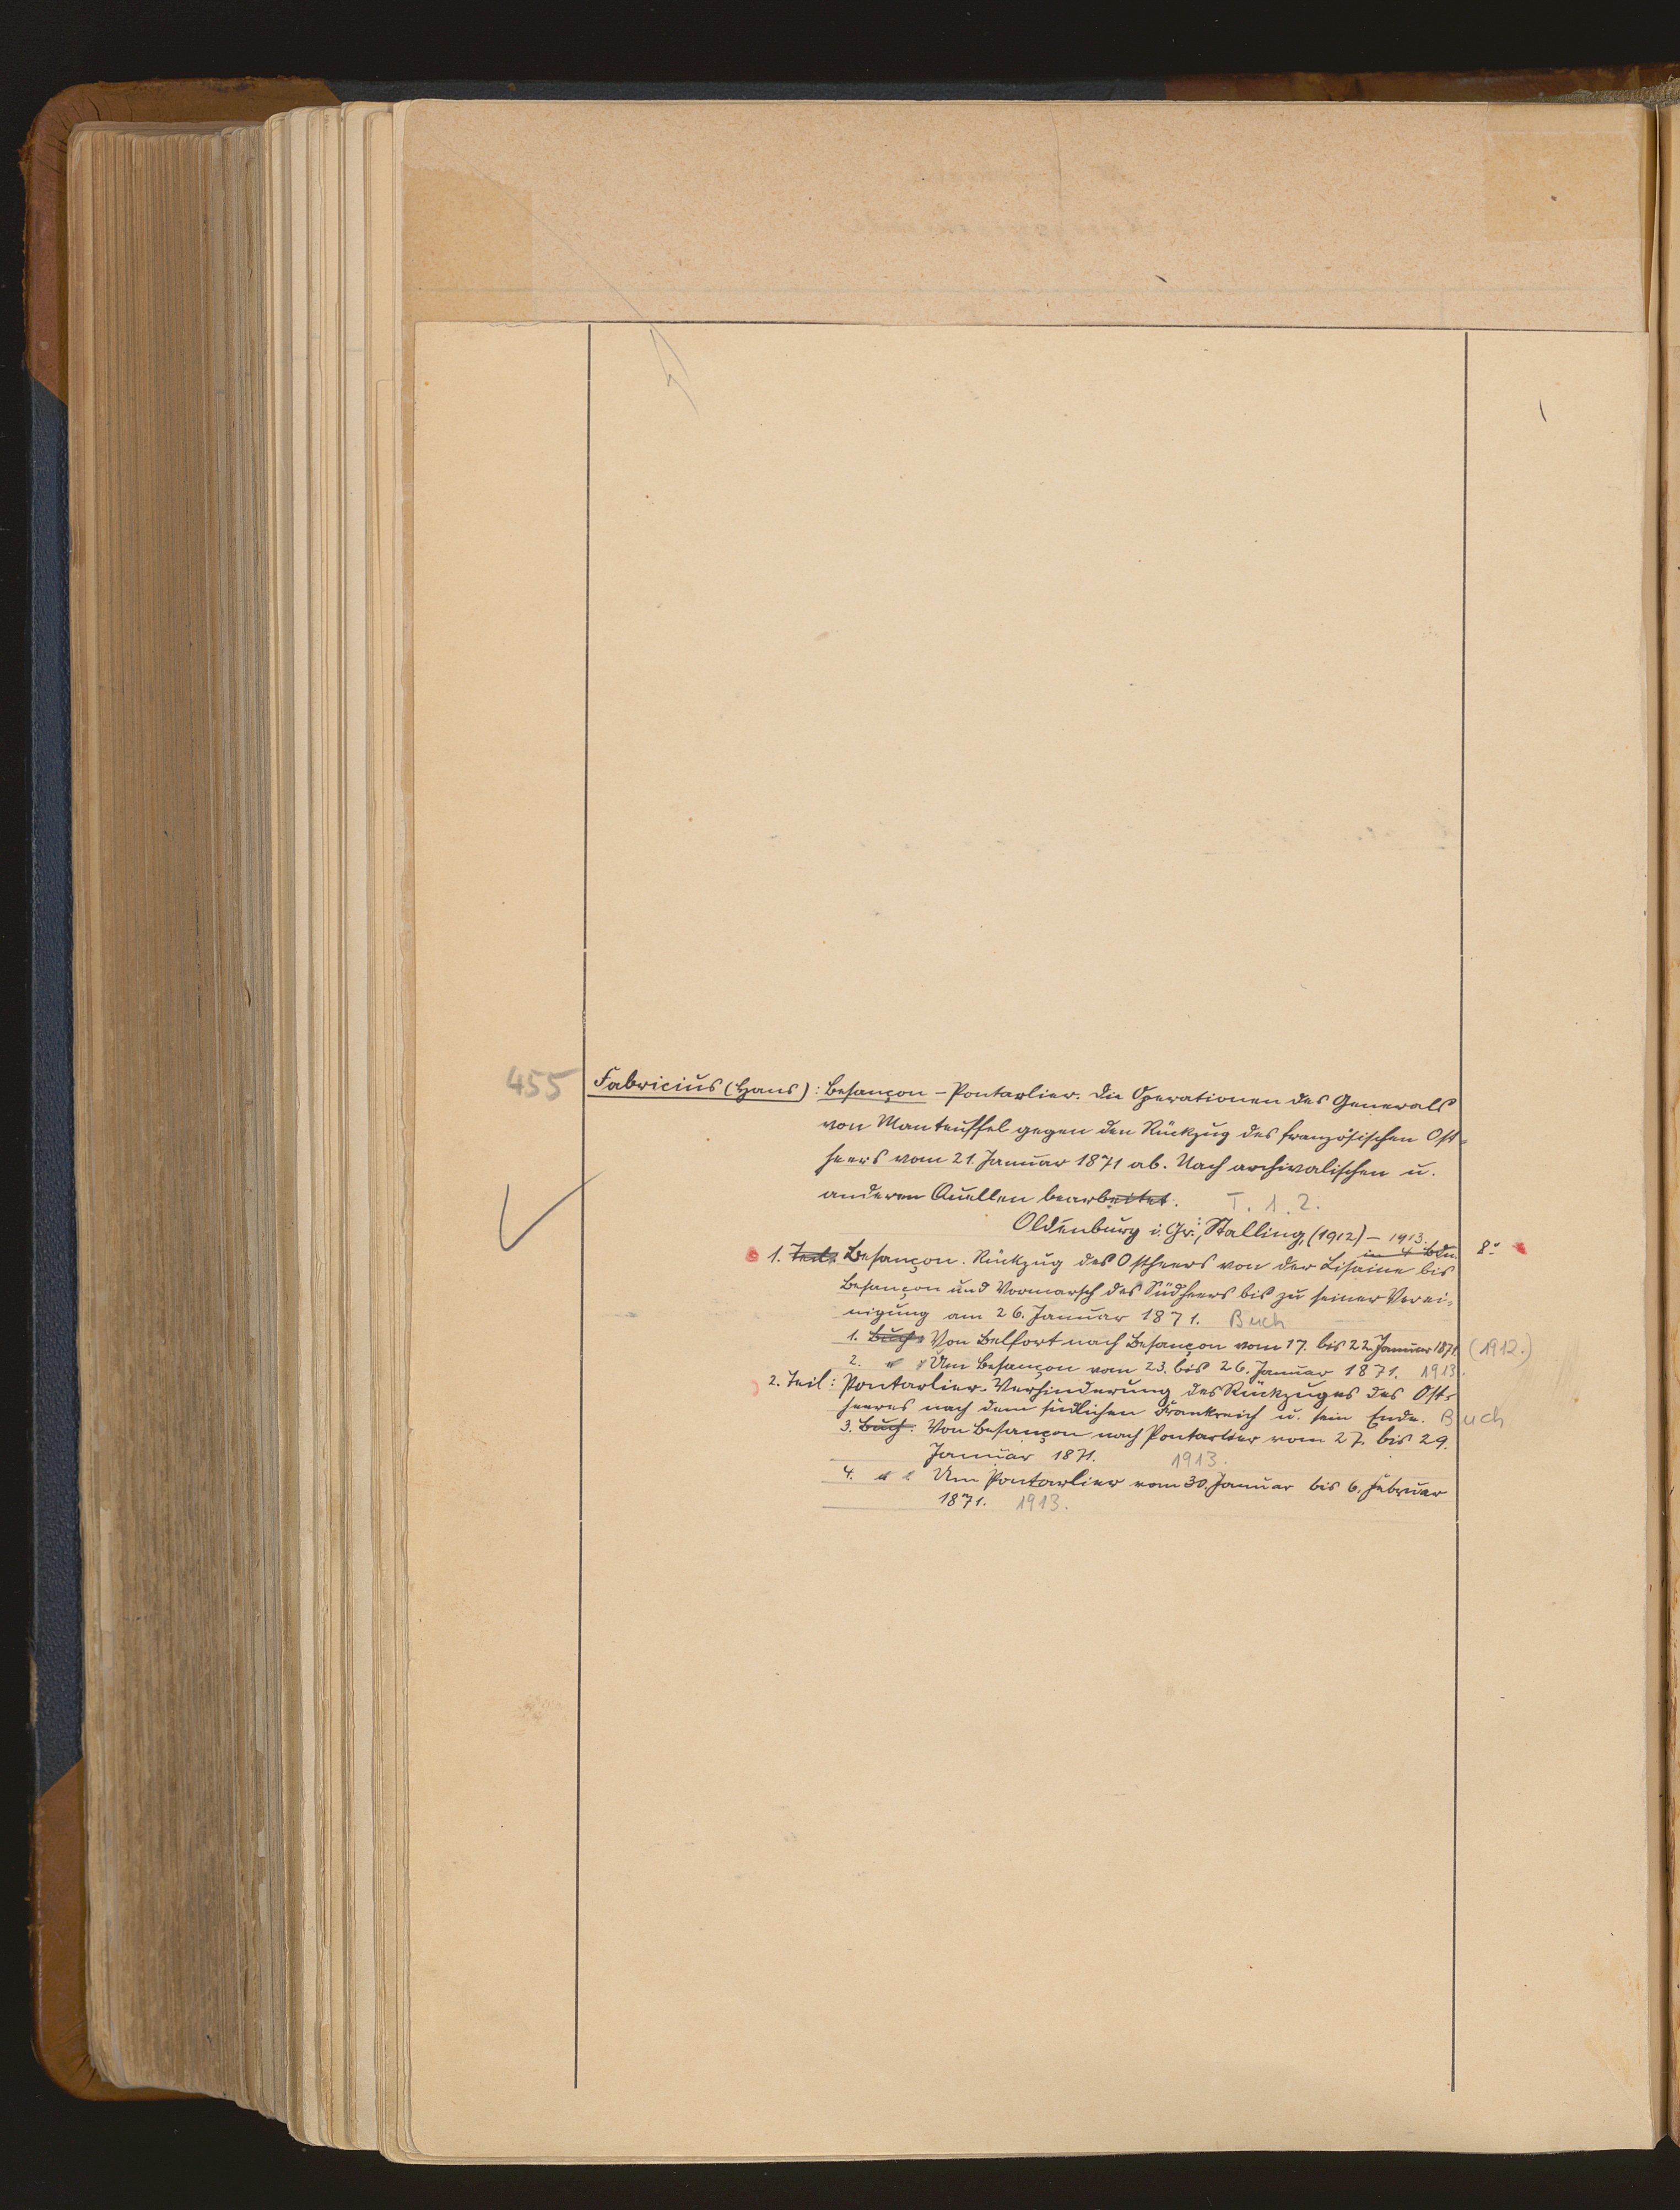 455 Fabricius (Hans): Besançon – Pontarlier. Die Operationen des Generals
von Manteuffel gegen den Rückzug des französischen Ost=
heers vom 21. Januar 1871 ab. Nach archivalischen u.
anderen Quellen bearbeitet. T. 1. 2.
Oldenburg i. Gr.: Stalling, (1912) – 1913.
in 4 Bdn. 8°
1. Teil: Besançon. Rückzug des Ostheers von der Lisaine bis
Besançon und Vormarsch des Südheers bis zu seiner Verei=
nigung am 26. Januar 1871. Buch
1. Buch: Von Belfort nach Besançon vom 17. bis 22. Januar 1871 (1912.)
2. " : Um Besançon vom 23. bis 26. Januar 1871. 1913.
2. Teil: Pontarlier. Verhinderung des Rückzuges des Ost=
heeres nach dem südlichen Frankreich u. sein Ende. Buch
3. Buch: Von Besançon nach Pontarlier vom 27. bis 29.
Januar 1871. 1913.
4. " : Um Pontarlier vom 30. Januar bis 6. Februar
1871. 1913.